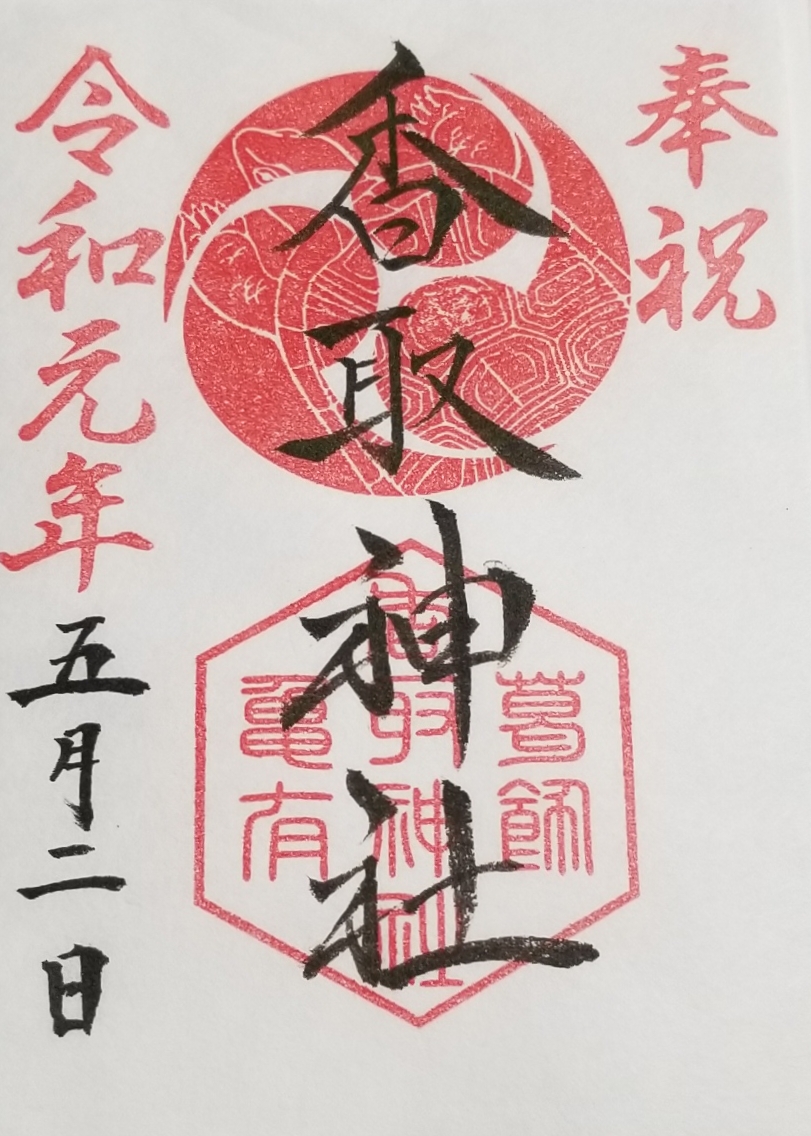 奉祝
香取神社
葛飾
香取神社
亀有
令和元年五月二日